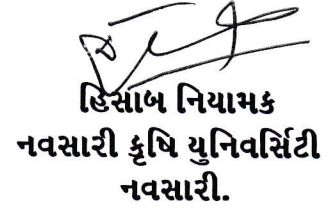 હિસાબ નિયામક
નવસારી કૃષિ યુનિવર્સિટી
નવસારી.